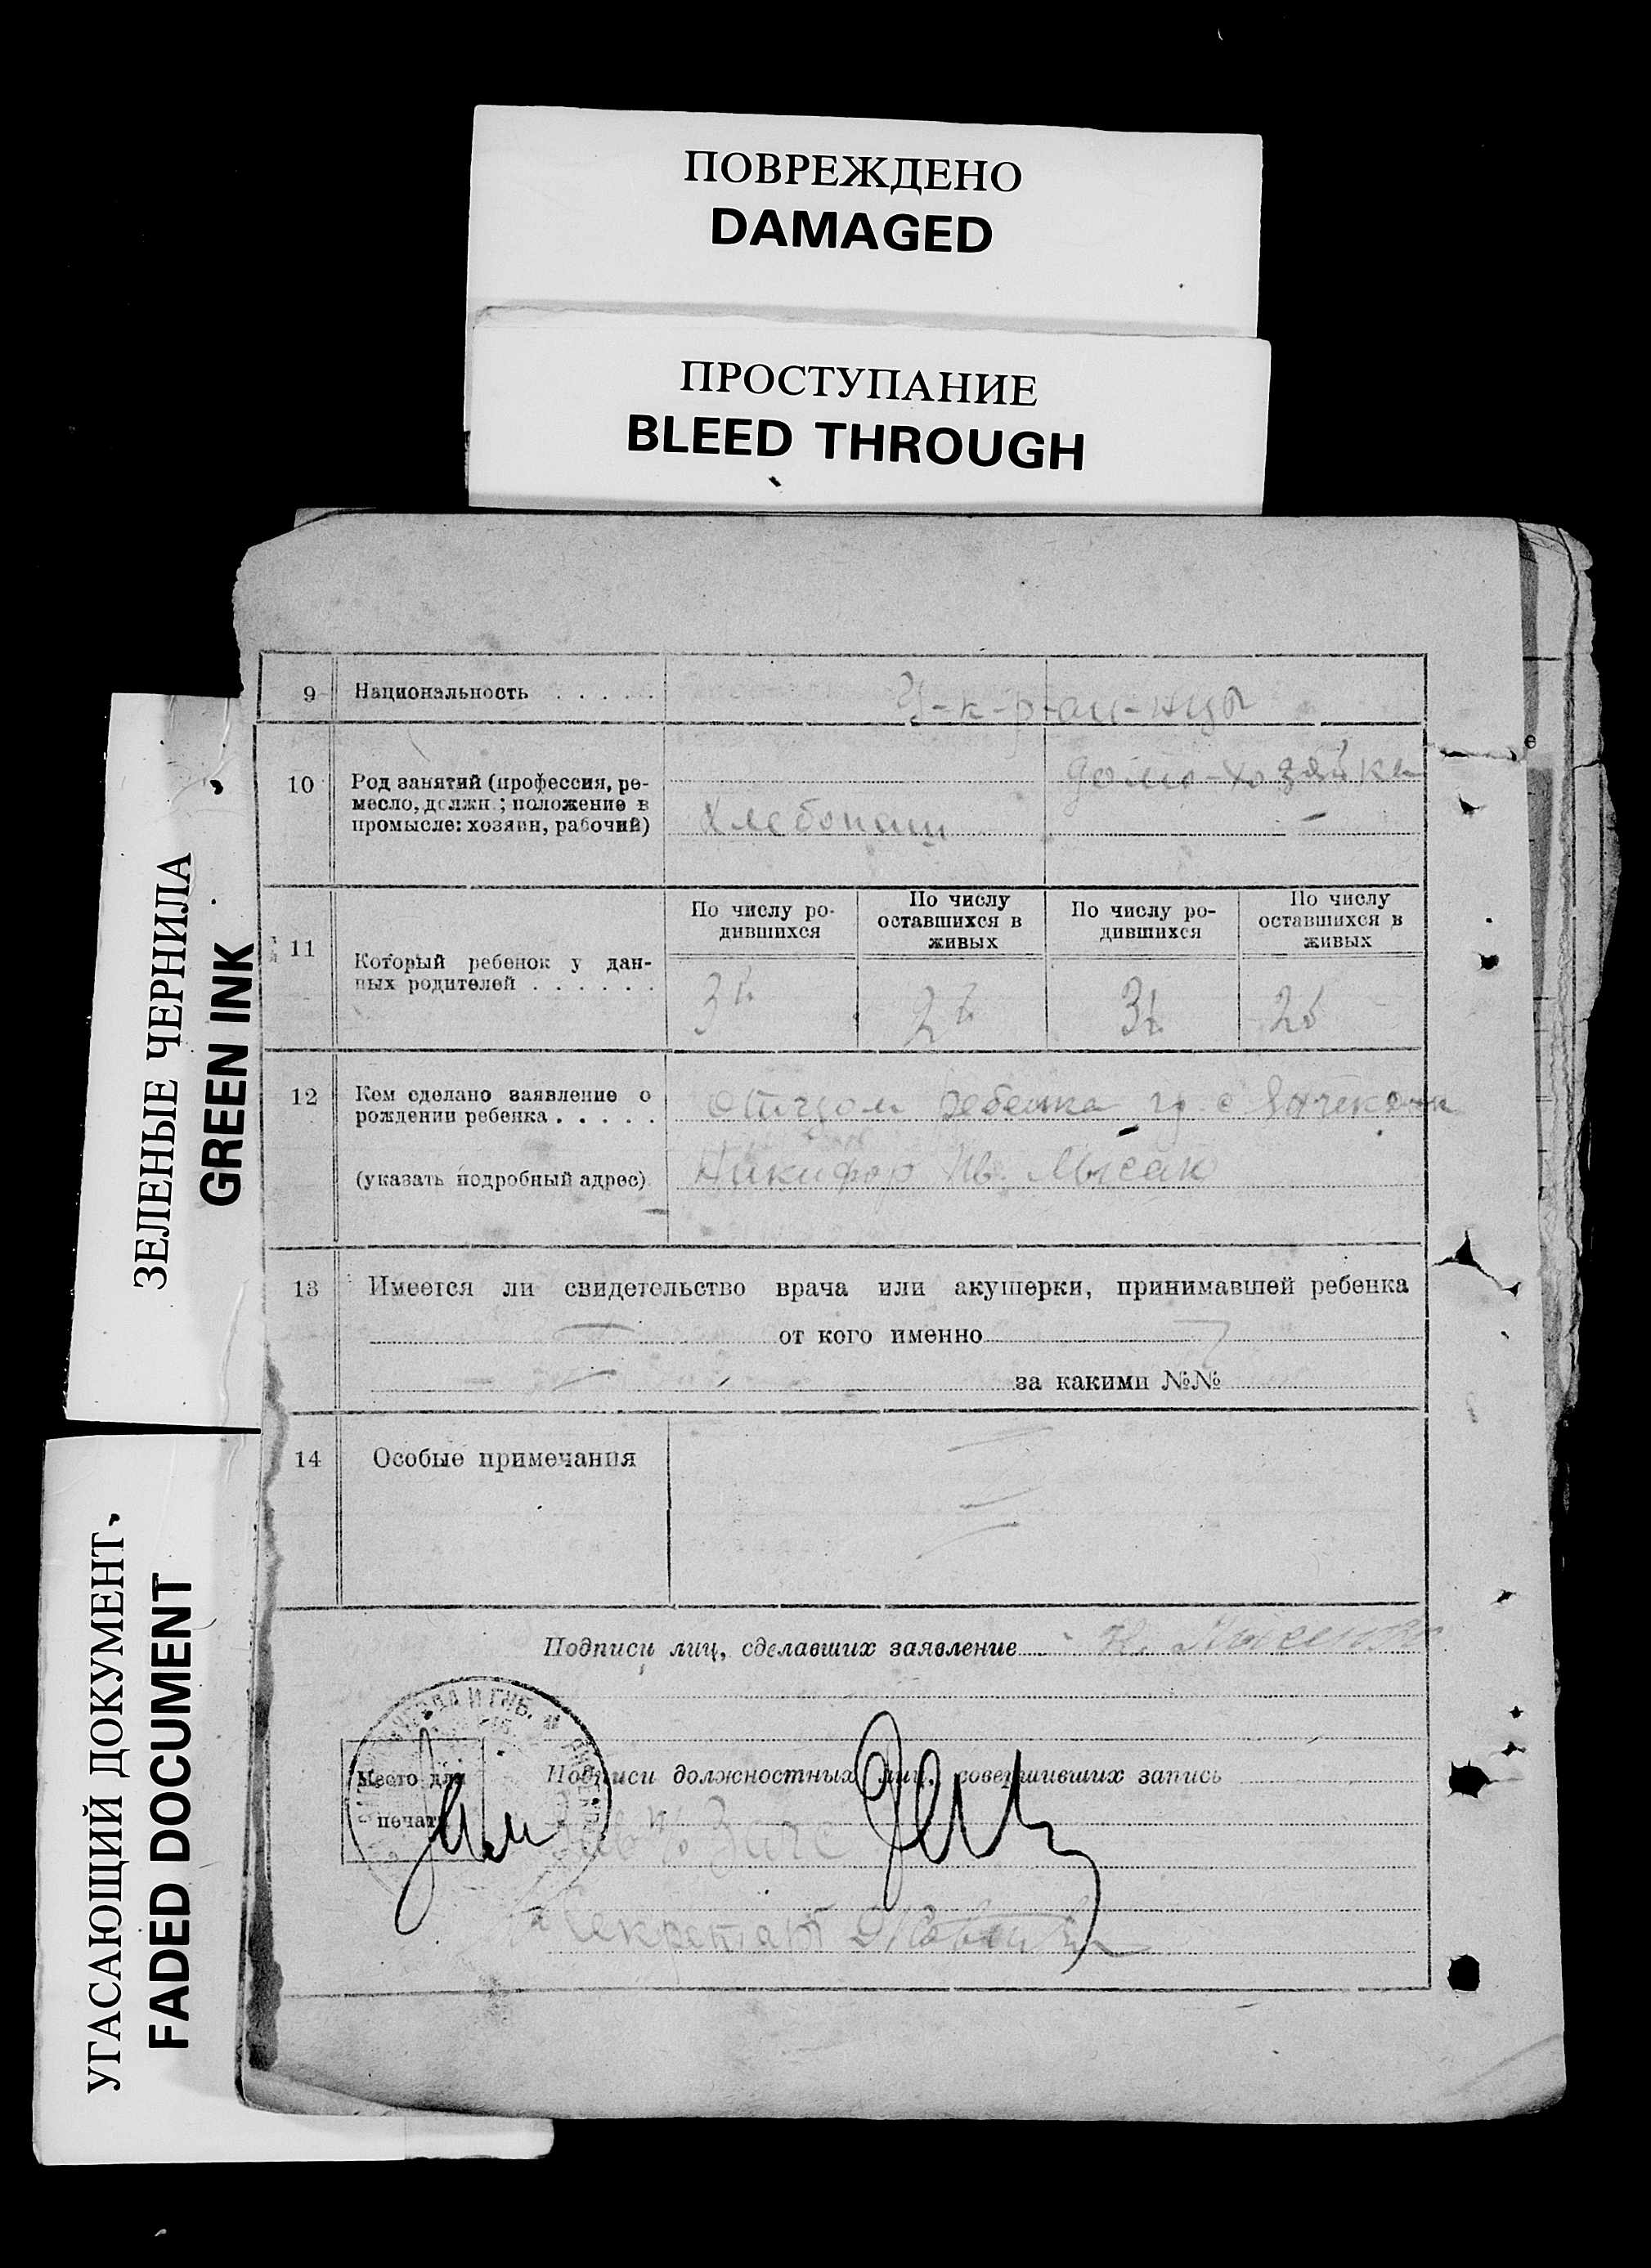 ПОВРЕЖДЕНО
DAMAGED
ПРОСТУПАНИЕ
BLEED THROUGH
ЗЕЛЕНЫЕ ЧЕРНИЛА
GREEN INK
УГАСАЮЩИЙ ДОКУМЕНТ
FADED DOCUMENT
9 Национальность . . . . . У-к-р-аи-нцы
10 Род занятий (профессия, ре-
месло, должн.; положение в
промысле: хозяин, рабочий)
Хлебопаш
домо-хозяйка
11 Который ребенок у дан-
ных родителей . . . . . .
По числу ро-
дившихся
По числу
оставшихся в
живых
По числу ро-
дившихся
По числу
оставшихся в
живых
12 Кем сделано заявление о
рождении ребенка . . . . .
(указать подробный адрес)
отцом ребенка гр. с
Никифор Ив. Мысак
13 Имеется ли свидетельство врача или акушерки, принимавшей ребенка
от кого именно
за какими №№
14 Особые примечания
Подписи лиц, сделавших заявление Н.
Место для
печати
Подписи должностных лиц, совершивших запись
Секретарь